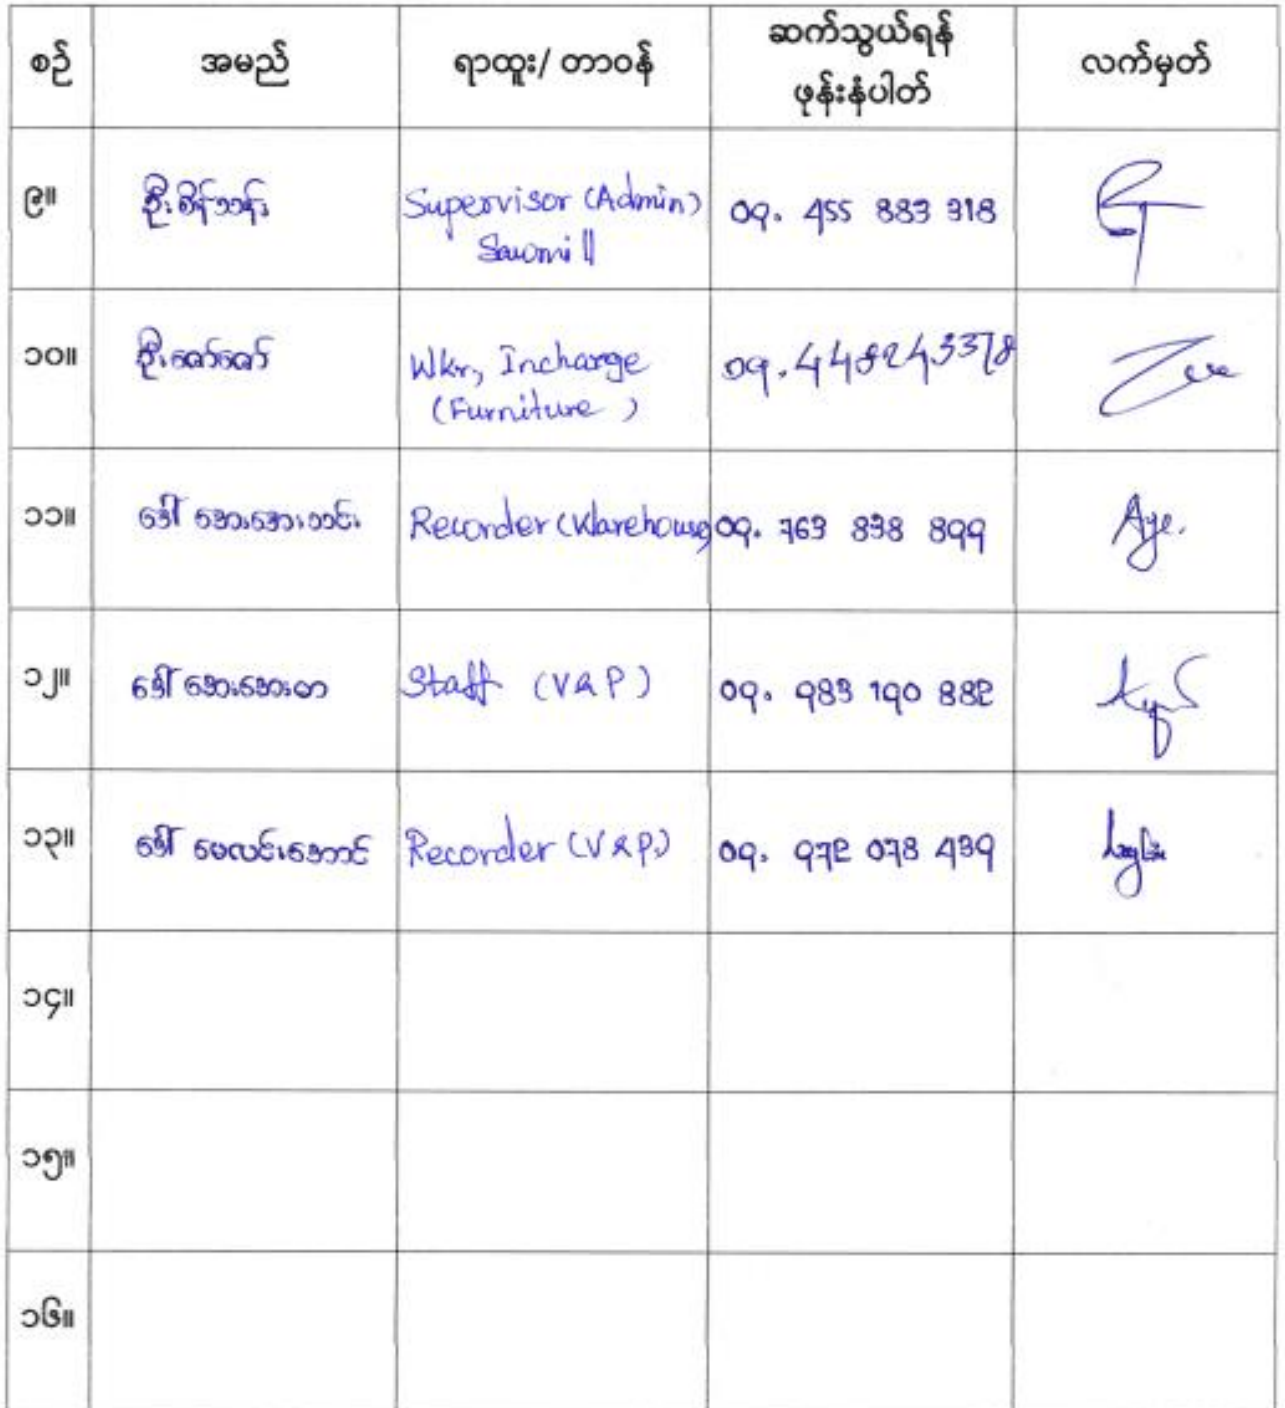 စဉ် အမည် ရာထူး/ တာဝန် ဆက်သွယ်ရန် ဖုန်းနံပါတ် လက်မှတ်
၉။ ဦးစိန်သန်း Supervisor (Admin) 09. 455 883 318
Sawmill
၁၀။ ဦးဇော်ဇော် Wkr, Incharge
(Furniture)
၁၁။ ဒေါ်အေးအေးသင်း Recorder (Warehouse) 09. 763 838 899 Aye.
၁၂။ ဒေါ်အေးအေးမာ Staff (V&P) 09. 983 190 882
၁၃။ ဒေါ်မေလင်းအောင် Recorder (V&P.) 09. 972 078 439
၁၄။
၁၅။
၁၆။